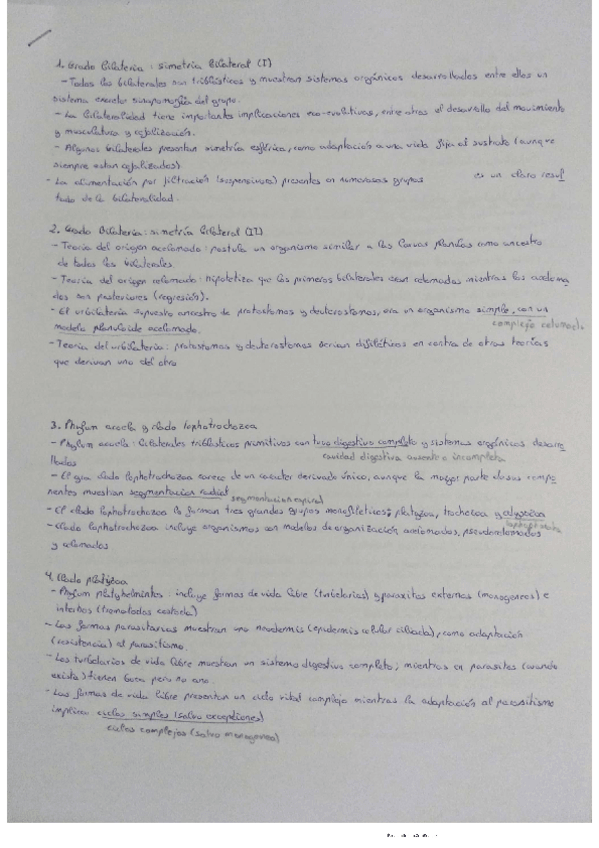 1. Grado bilateria: simetría bilateral (I)
- Todos los bilaterales son triblásticos y muestran sistemas orgánicos desarrollados entre ellos un
sistema excretor sinapomorfía del grupo.
- La bilateralidad tiene importantes implicaciones eco-evolutivas, entre otras el desarrollo del movimiento
y musculatura y cefalización.
- Algunos bilaterales presentan simetría esférica, como adaptación a una vida fija al sustrato (aunque
siempre estan cefalizados)
- La alimentación por filtración (suspensívora) presentes en numerosos grupos es un claro resul
tado de la bilateralidad.
2. Grado Bilateria: simetría bilateral (II)
- Teoría del origen acelomado: postula un organismo similar a las larvas plánulas como ancestro
de todos los bilaterales.
- Teoría del origen celomado: hipotetiza que los primeros bilaterales eran celomados mientras los aceloma
dos son posteriores (regresión).
- El urbilateria supuesto ancestro de protostomos y deuterostomos, era un organismo simple, con un
modelo planuloide acelomado.
complejo celomado
- Teoría del urbilateria: protostomos y deuterostomos serian difiléticos en contra de otras teorías
que derivan uno del otro
3. Phylum acoela y clado lophotrochozoa
- Phylum acoela: bilaterales triblásticos primitivos con tubo digestivo completo y sistemas orgánicos desarro
llados
cavidad digestiva ausente o incompleta
- El gran clado lophotrochozoa carece de un caracter derivado único, aunque la mayor parte de sus compo
nentes muestran segmentacion radial
segmentacion espiral
- El clado lophotrochozoa lo forman tres grandes grupos monofiléticos; platyzoa, trochozoa y
- Clado lophotrochozoa incluye organismos con modelos de organización acelomados, pseudocelomados
y celomados
4. Clado platyzoa
- Phylum platyhelmintes: incluye formas de vida libre (turbelarios) y parasitas externas (monogeneos) e
internos (trematodos cestoda)
- Las formas parasitarias muestran una neodermis (epidermis celular ciliada), como adaptación
(resistencia) al parasitismo.
- Los turbelarios de vida libre muestran un sistema digestivo completo; mientras en parasitas (cuando
existe) tienen boca pero no ano.
- Las formas de vida libre presentan un ciclo vital complejo mientras la adaptación al parasitismo
implica ciclos simples (salvo excepciones)
ciclos complejos (salvo monogenea)